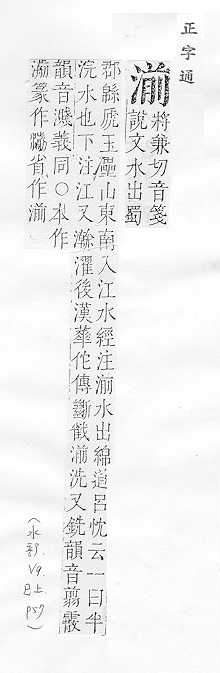 正字通
湔
將兼切音箋
說文水出蜀
郡緜虒玉壘山東南入江水經注湔水出綿道呂忱云一曰半
浣水也下注江又瀚濯後漢華佗傳斷截湔洗又銑韻音翦霰
韻音濺義同〇本作
湔篆作 省作湔
(水部.
V9.
巳上.
P57)